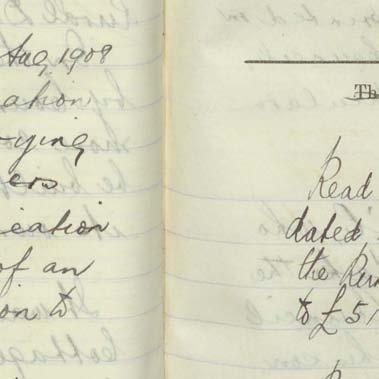 Aug 1908
ation
ying
ers
ication
of an
on to
Th
Read
dated
the Rur
to £51